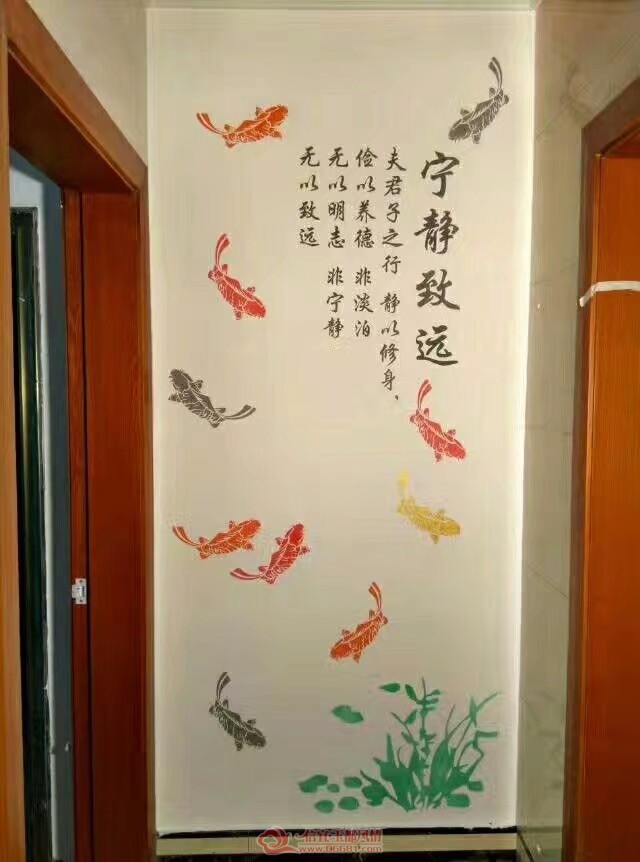 宁静致远
夫君子之行 静以修身，
俭以养德 非淡泊
无以明志 非宁静
无以致远
www.06681.com